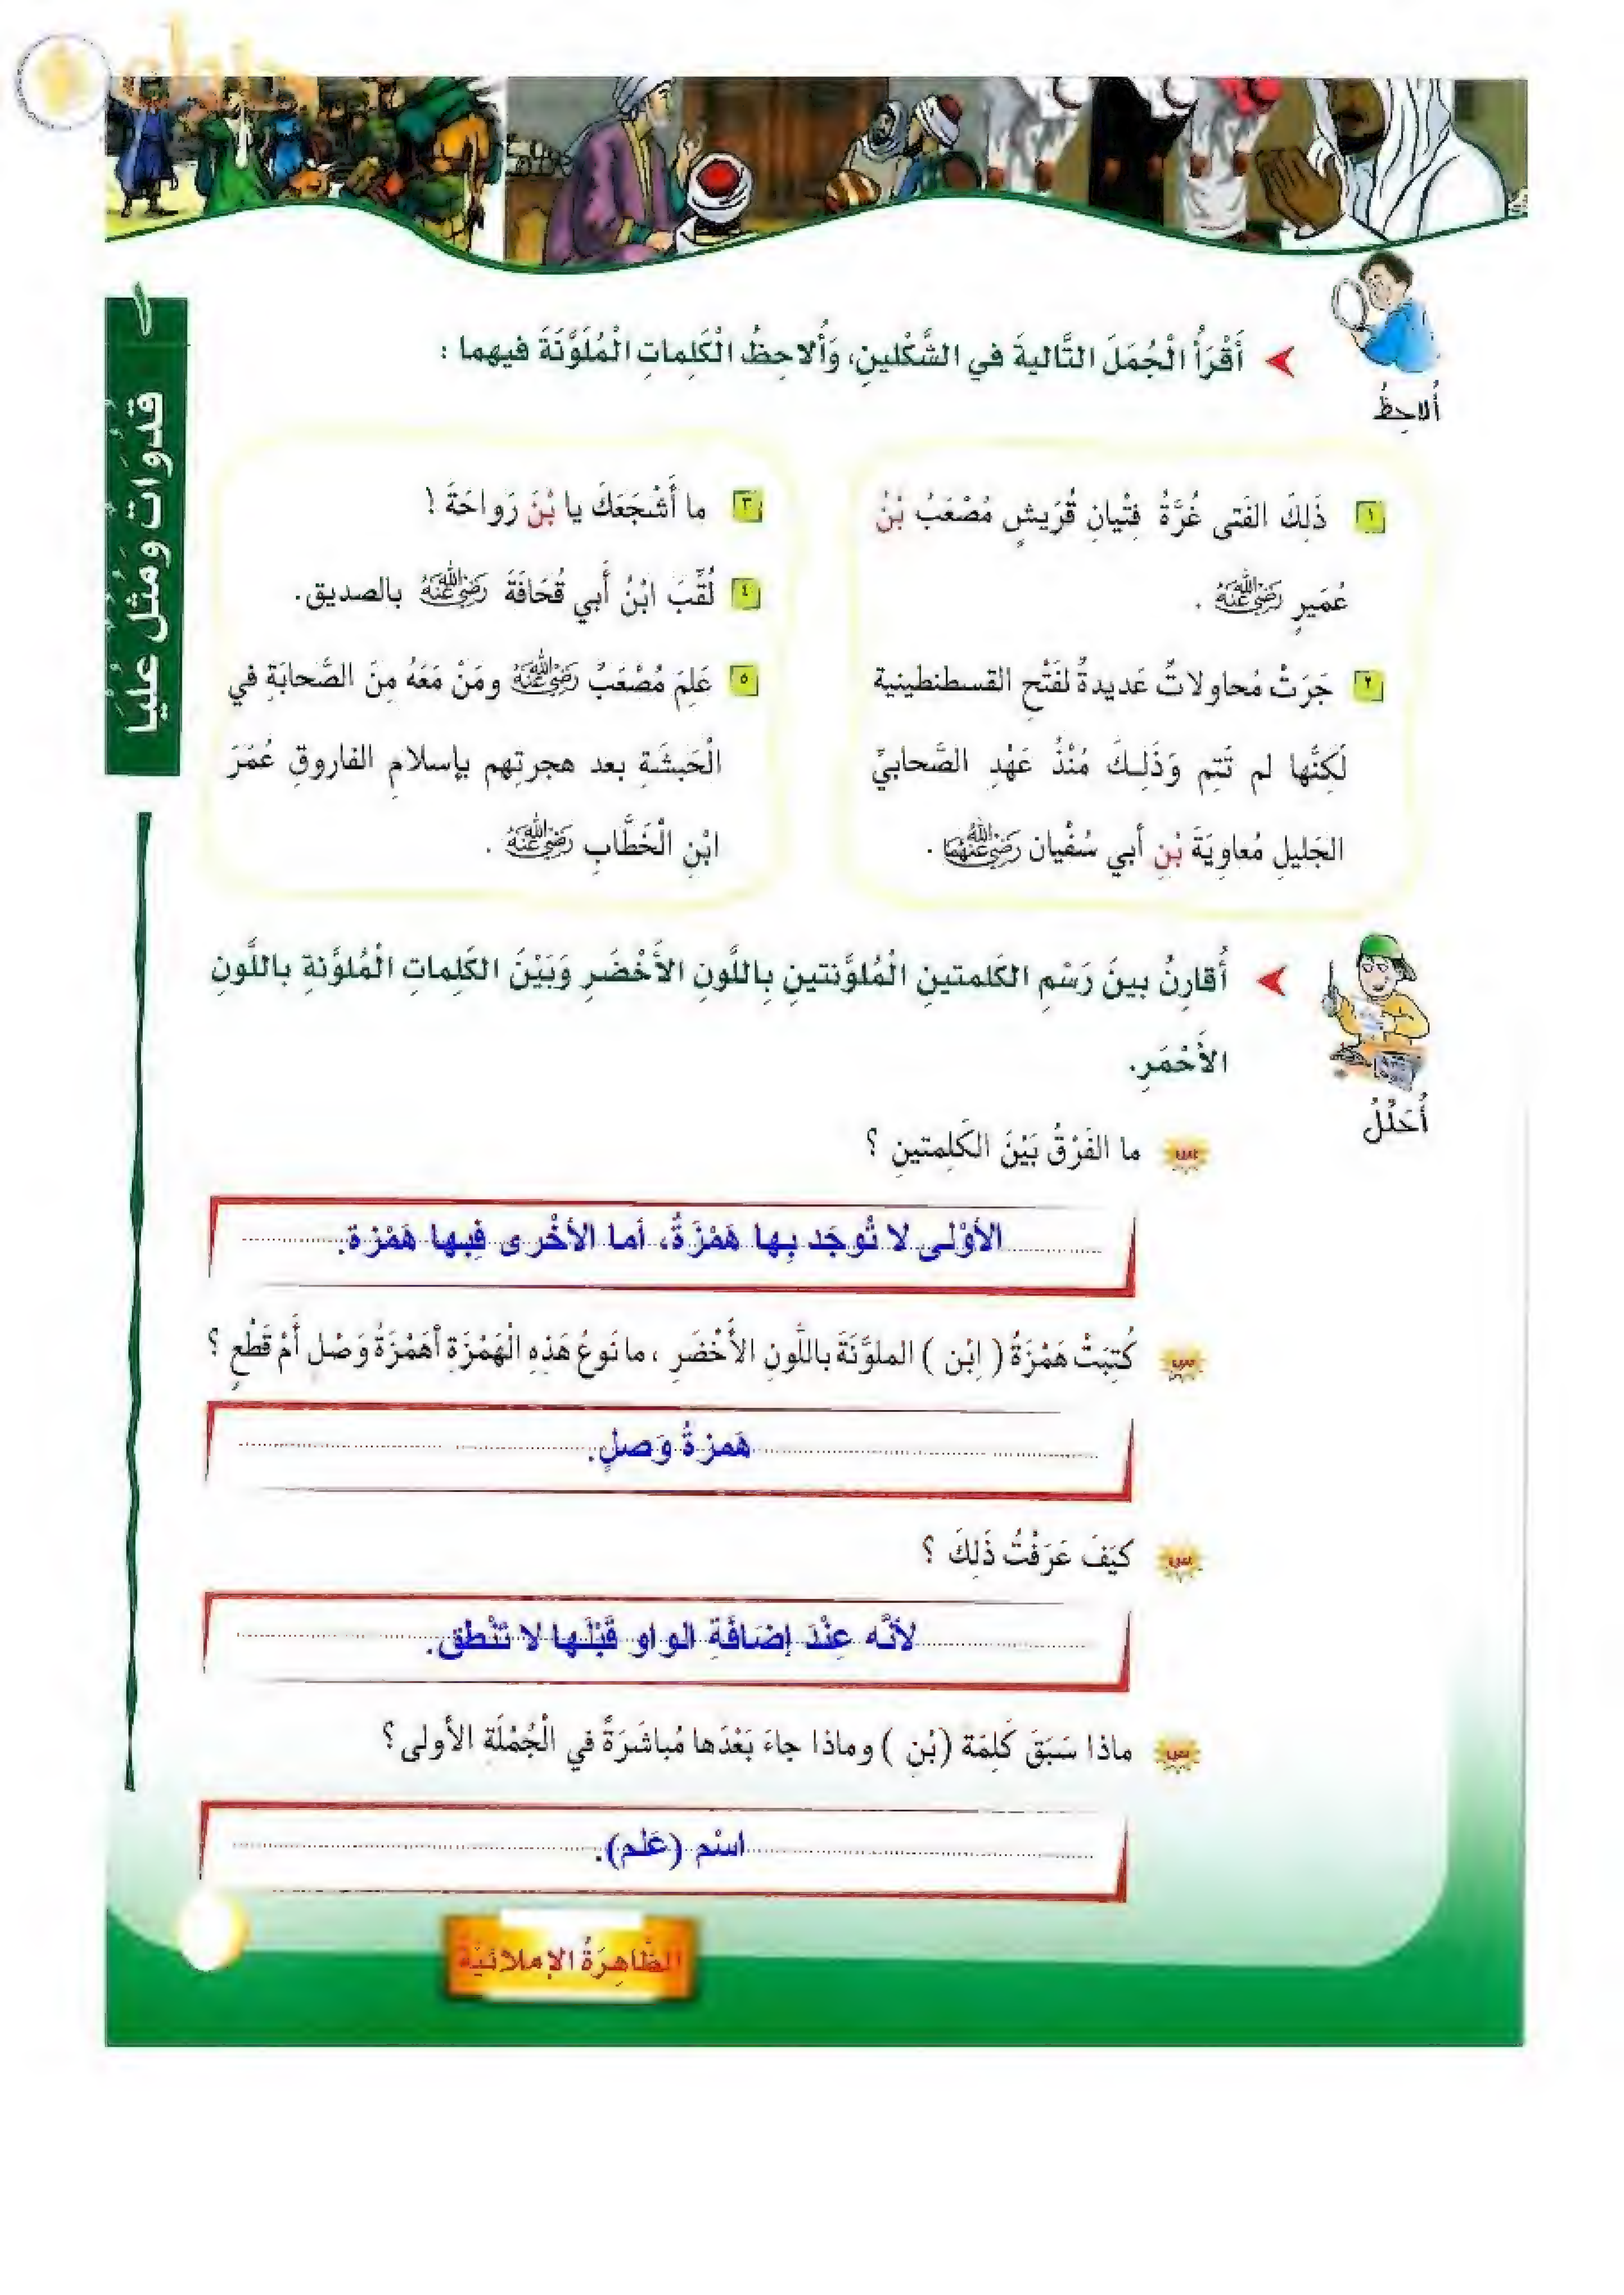 أَقْرَأُ الْجُمَلَ التَّاليةَ في الشَّكْلينِ، وَأُلاحِظُ الْكَلِماتِ الْمُلَوَّنَةَ فيهما :
أُلاحِظُ
١ ذَلِكَ الفَتى غُرَّةُ فِتْيانِ قُرَيشٍ مُصْعَبُ بْنُ
عُمَيرٍ رَضِيَ اللَّهُ عَنْهُ .
٢ جَرَتْ مُحاولاتٌ عَديدةٌ لفَتْحِ القسطنطينية
لَكِنَّها لم تَتِم وَذَلِـكَ مُنْذُ عَهْدِ الصَّحابيِّ
الجَليلِ مُعاوِيَةَ بْنِ أبي سُفْيان رَضِيَ اللَّهُ عَنْهُمَا .
٣ ما أَشْجَعَكَ يا بْنَ رَواحَةَ !
٤ لُقِّبَ ابْنُ أَبي قُحَافَةَ رَضِيَ اللَّهُ عَنْهُ بالصديق.
٥ عَلِمَ مُصْعَبٌ رَضِيَ اللَّهُ عَنْهُ ومَنْ مَعَهُ مِنَ الصَّحابَةِ في
الْحَبشَةِ بعد هجرتِهم بإسلامِ الفاروقِ عُمَرَ
ابْنِ الْخَطَّابِ رَضِيَ اللَّهُ عَنْهُ .
قدْوَاتٌ وَمُثُلٌ عُلْيَا
أُقارِنُ بينَ رَسْمِ الكَلمتينِ الْمُلوَّنتينِ بِاللَّونِ الأَخْضَرِ وَبَيْنَ الكَلِماتِ الْمُلوَّنةِ باللَّونِ
الأَحْمَرِ.
أُحَلِّلُ
س ما الفَرْقُ بَيْنَ الكَلِمتينِ ؟
الأوْلى لا تُوجَد بِها هَمْزَةٌ، أما الأخْرى فِيها هَمْزة.
س كُتِبَتْ هَمْزَةُ ( اِبْن ) الملوَّنَةَ باللَّونِ الأَخْضَرِ ، ما نَوعُ هَذِهِ الْهَمْزَةِ أهَمْزَةُ وَصْل أَمْ قَطْعٍ ؟
هَمزةُ وَصلٍ.
س كيَفَ عَرَفْتُ ذَلِكَ ؟
لأنَّه عِنْدَ إضَافَةِ الواو قَبْلَها لا تَنْطق.
س ماذا سَبَقَ كَلِمَة (بْن ) وماذا جاءَ بَعْدَها مُباشَرَةً في الْجُمْلَة الأولى ؟
اسْم (عَلم).
الظَّاهِرَةُ الإملائيّةُ